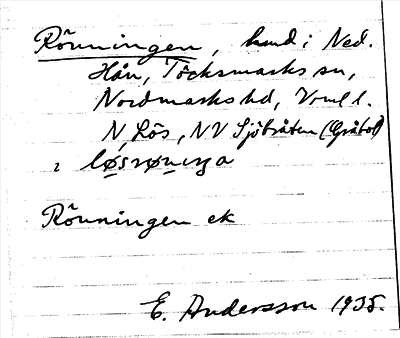 Rönningen, hmd i Ned.
Hån, Töcksmarks sn,
Nordmarks hd, Vrml l.
N. Lös, NV Sjöbråten (Gråbol)
2 lǿsrønıŋa
Rönningen ek
E. Andersson 1935.